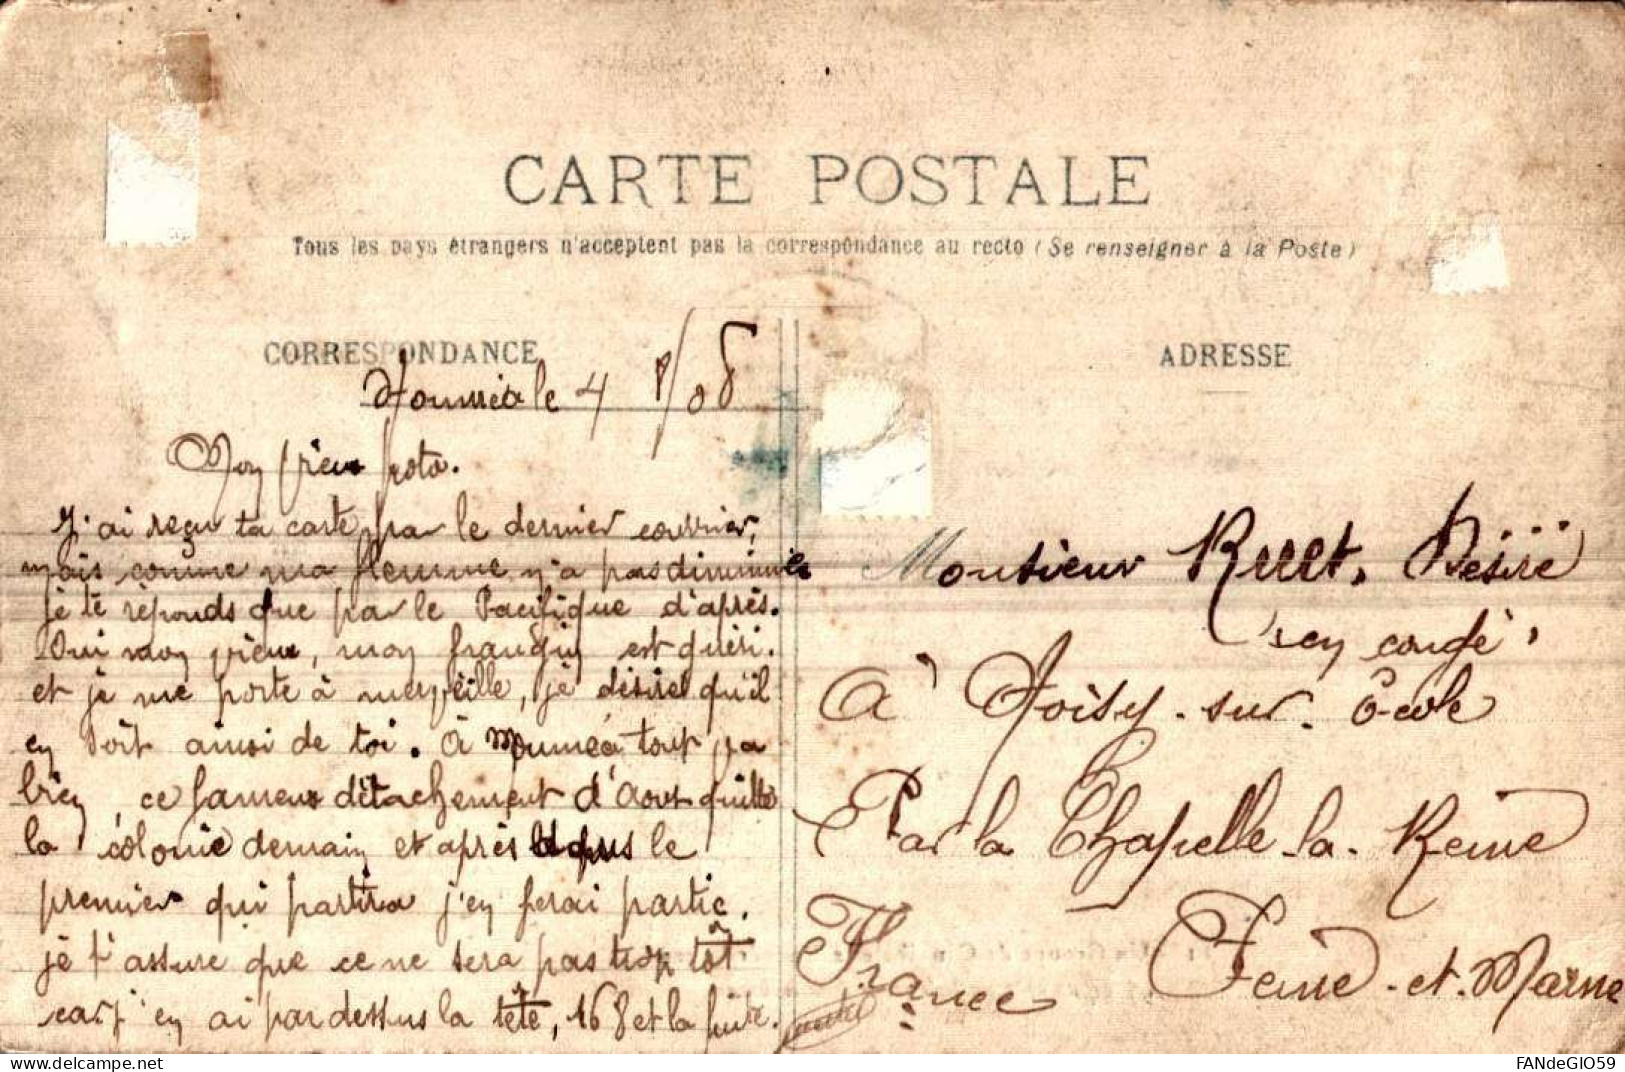 CARTE POSTALE
Tous les pays étrangers n'acceptent pas la correspondance au recto (Se renseigner à la Poste)
CORRESPONDANCE
Nouméa le 4 8/08
Mon vieux poto.
J'ai reçu ta carte par le dernier courrier,
mais comme ma flemme n'a pas diminuée
je te réponds que par le Pacifique d'après.
Oui mon vieux, mon frangin est guéri.
et je me porte à merveille, je désire qu'il
en soit ainsi de toi. à Nouméa tout va
bien ce fameux détachement d'Aout quitte
la colonie demain et après le
premier qui partira j'en ferai partie.
je t'assure que ce ne sera pas trop tôt
car j'en ai par dessus la tête, 168 et la fuite.
ADRESSE
Monsieur Ruet, Désiré
en congé,
à Noisy-sur-École
Par la Chapelle-la-Reine
Seine-et-Marne
France
delcampe.net
FANdeGIO59